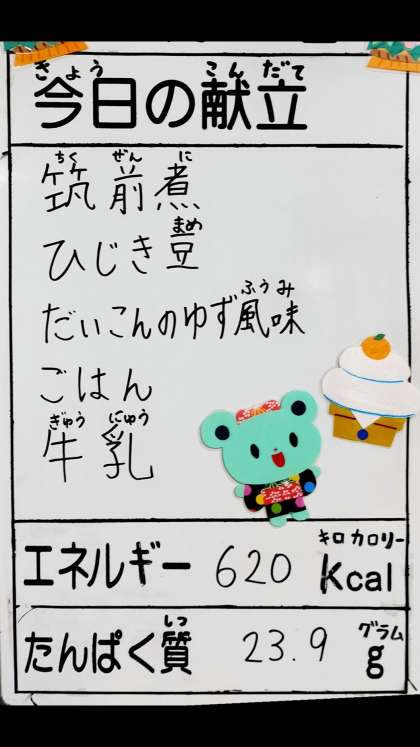 きょう こんだて
今日の献立
ちく ぜん に
筑前煮
まめ
ひじき豆
ふうみ
だいこんのゆず風味
ごはん
ぎゅう にゅう
牛乳
キロ カロリー
エネルギー 620 kcal
しつ グラム
たんぱく質 23.9 g